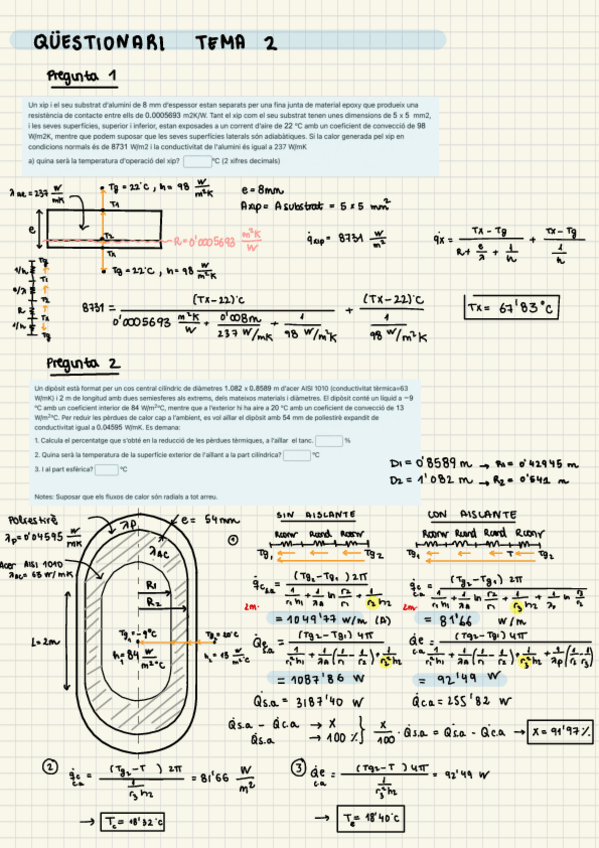 QÜESTIONARI TEMA 2
Pregunta 1
Un xip i el seu substrat d'alumini de 8 mm d'espessor estan separats per una fina junta de material epoxy que produeix una
resistència de contacte entre ells de 0.0005693 m2K/W. Tant el xip com el seu substrat tenen unes dimensions de 5 x 5 mm2,
i les seves superfícies, superior i inferior, estan exposades a un corrent d'aire de 22 ºC amb un coeficient de convecció de 98
W/m2K, mentre que podem suposar que les seves superfícies laterals són adiabàtiques. Si la calor generada pel xip en
condicions normals és de 8731 W/m2 i la conductivitat de l'alumini és igual a 237 W/mK
a) quina serà la temperatura d'operació del xip? ºC (2 xifres decimals)
λAe = 237 W/mK
Tg = 22°C, h = 98 W/m²K
e = 8mm
Axip = Asubstrat = 5 x 5 mm²
T1
e
T2
R = 0'0005693 m²K/W
Tx
Tg = 22°C, h = 98 W/m²K
q̇xip = 8731 W/m²
q̇x = (Tx - Tg)/(R + e/λ + 1/h) + (Tx - Tg)/(1/h)
Tg
1/h
T1
e/λ
T2
R
Tx
1/h
Tg
8731 = (Tx-22)°C/(0'0005693 m²K/W + 0'008m/237 W/mK + 1/98 W/m²K) + (Tx-22)°C/(1/98 W/m²K)
Tx = 67'83°C
Pregunta 2
Un dipòsit està format per un cos central cilíndric de diàmetres 1.082 x 0.8589 m d'acer AISI 1010 (conductivitat tèrmica=63
W/mK) i 2 m de longitud amb dues semiesferes als extrems, dels mateixos materials i diàmetres. El dipòsit conté un líquid a -9
ºC amb un coeficient interior de 84 W/m²ºC, mentre que a l'exterior hi ha aire a 20 ºC amb un coeficient de convecció de 13
W/m²ºC. Per reduir les pèrdues de calor cap a l'ambient, es vol aïllar el dipòsit amb 54 mm de poliestirè expandit de
conductivitat igual a 0.04595 W/mK. Es demana:
1. Calcula el percentatge que s'obté en la reducció de les pèrdues tèrmiques, a l'aïllar el tanc. %
2. Quina serà la temperatura de la superfície exterior de l'aïllant a la part cilíndrica? ºC
3. I al part esfèrica? ºC
Notes: Suposar que els fluxos de calor són radials a tot arreu.
D1 = 0'8589 m → R1 = 0'42945 m
D2 = 1'082 m → R2 = 0'541 m
Poliestirè
λp = 0'04595 W/mK
λp
e = 54mm
Acer AISI 1010
λAC = 63 W/mK
λAC
R1
R2
L = 2m
Tg1 = -9°C
h1 = 84 W/m²°C
Tg2 = 20°C
h2 = 13 W/m²°C
① SIN AISLANTE
Rconv Rcond Rconv
Tg1 Tg2
CON AISLANTE
Rconv Rcond Rcond Rconv
Tg1 T Tg2
2m.
= 1049'77 W/m (A)
2m
= 81'66 W/m
= 1087'86 W
= 92'49 W
Q̇s.a = 3187'40 W
Q̇c.a = 255'82 W
Q̇s.a - Q̇c.a → X
Q̇s.a → 100 %
X/100 · Q̇s.a = Q̇s.a - Q̇c.a → X = 91'97%
② q̇c c.a = (Tg2 - T) 2π/(1/r3h2) = 81'66 W/m²
→ Tc = 18'32°C
③ Q̇e c.a = (Tg2 - T) 4π/(1/r3²h2) = 92'49 W
→ Te = 18'40°C